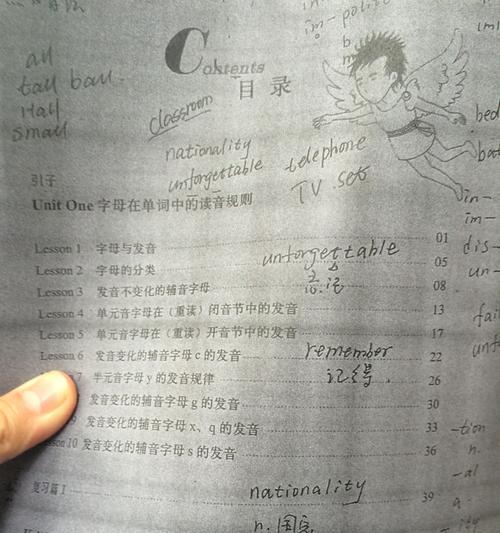 im-polite
all
tall ball.
Hall
small
Contents
目录
classroom
nationality
unforgettable
telephone
TV set
引子
Unit One 字母在单词中的读音规则
Lesson 1 字母与发音 01
unforgettable
Lesson 2 字母的分类 05
Lesson 3 发音不变化的辅音字母 08
忘记
Lesson 4 单元音字母在（重读）闭音节中的发音 13
Lesson 5 单元音字母在（重读）开音节中的发音 17
Lesson 6 发音变化的辅音字母 c 的发音 22
remember
7 半元音字母 y 的发音规律 26
记得
发音变化的辅音字母 g 的发音 30
9 发音变化的辅音字母 x、q 的发音 33
Lesson 10 发音变化的辅音字母 s 的发音 36
复习篇 I 39
nationality
n. 国家
bed
in-
im-
dis-
un-
-tion
n.
-al
a.
-ity